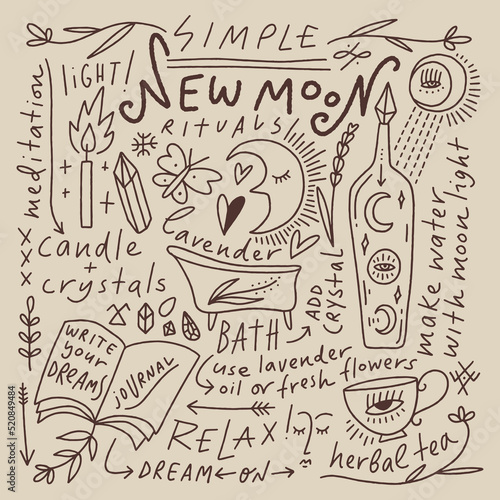 SIMPLE
NEW MOON
RITUALS
LIGHT!
meditation
candle
+
crystals
lavender
BATH
ADD
CRYSTAL
use lavender
oil or fresh flowers
make water
with moon light
WRITE
your
DREAMS
JOURNAL
RELAX!
DREAM ON
herbal tea
Adobe Stock | #520849484